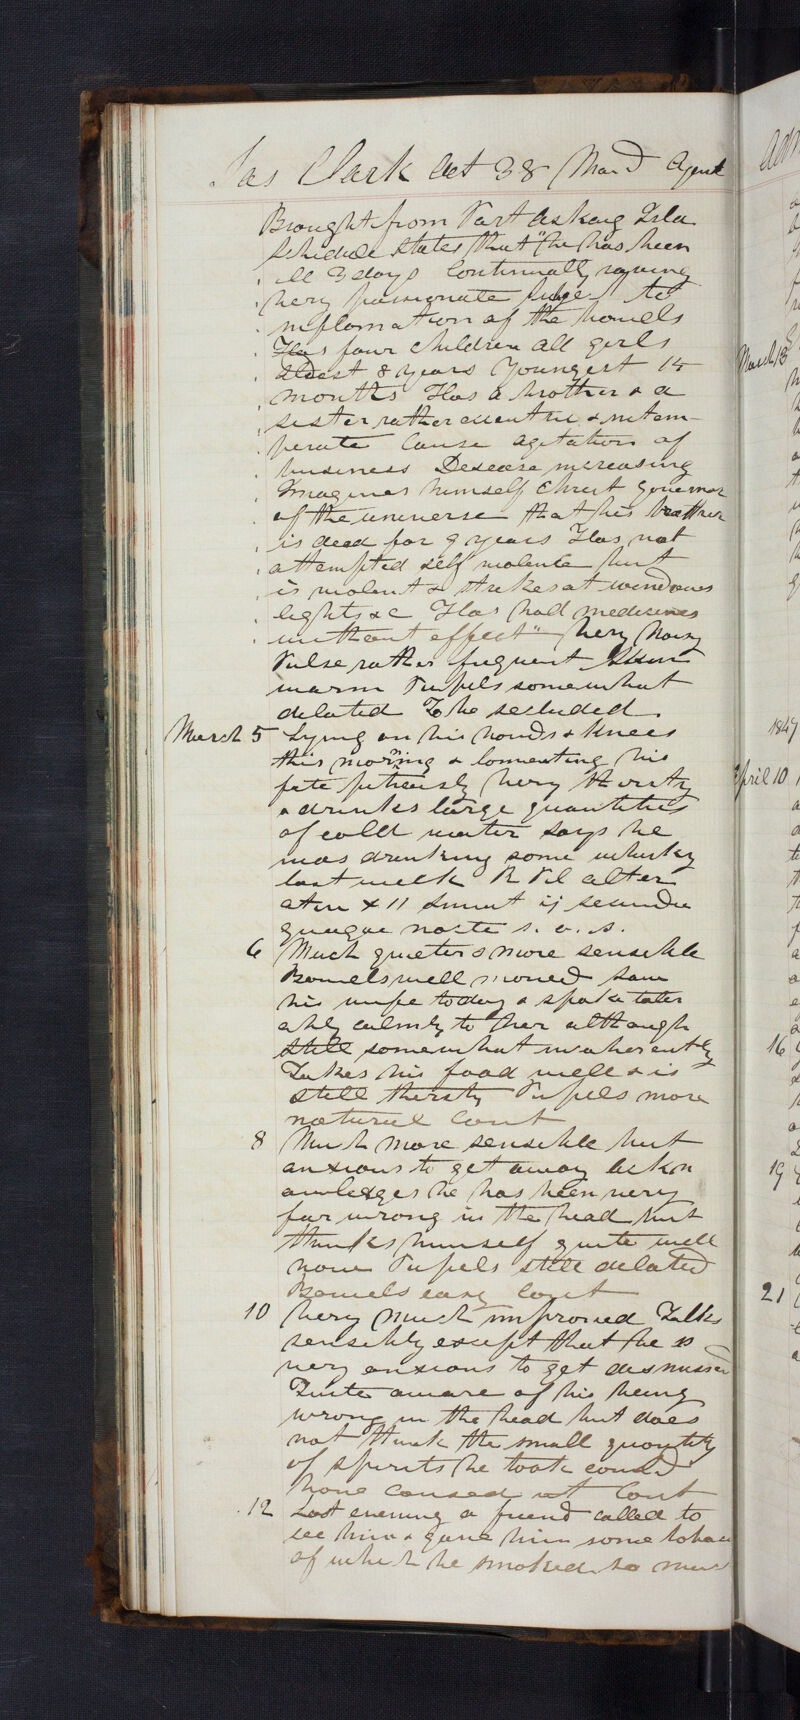 Jas Clark aet 38 Mard Agent
Brought from Port Askaig Isla
Schedule states that "he has been
ill 3 days Continually raving
very passionate subject to
inflamation of the bowels
Has four children all girls
Eldest 8 years Youngest 14
months Has a brother & a
sister rather eccentric & intem-
perate Cause agitation of
business Disease increasing
Imagines himself Christ governor
of the universe that his brother
is dead for 9 years Has not
attempted self violence but
is violent & strikes at windows
lights &c Has had medicines
without effect" Very Noisy
Pulse rather frequent Skin
warm Pupils somewhat
dilated To be secluded
March 5 Lying on his hands & knees
this morning & lamenting his
fate piteously Very thirsty
& drinks large quantities
of cold water Says he
was drinking some whisky
last week R Pil alter
aten X 11 Sumat ij secunda
quaque nocte s. o. s.
6 Much quieter & more sensible
Bowels well moved Saw
his wife today & spoke toler
ably calmly to her although
still somewhat incoherently
Takes his food well & is
still thirsty Pupils more
natural Cont
8 Much more sensible but
anxious to get away Ackn
owledges he has been very
far wrong in the head but
thinks himself quite well
now Pupils still dilated
Bowels easy Cont
10 Very much improved Talks
sensibly except that he is
very anxious to get dismissed
Quite aware of his being
wrong in the head but does
not think the small quantity
of spirits he took could
have caused it Cont
12 Last evening a friend called to
see him & gave him some tobacc
of which he smoked so much
March 18
1847
April 10
16
19
21